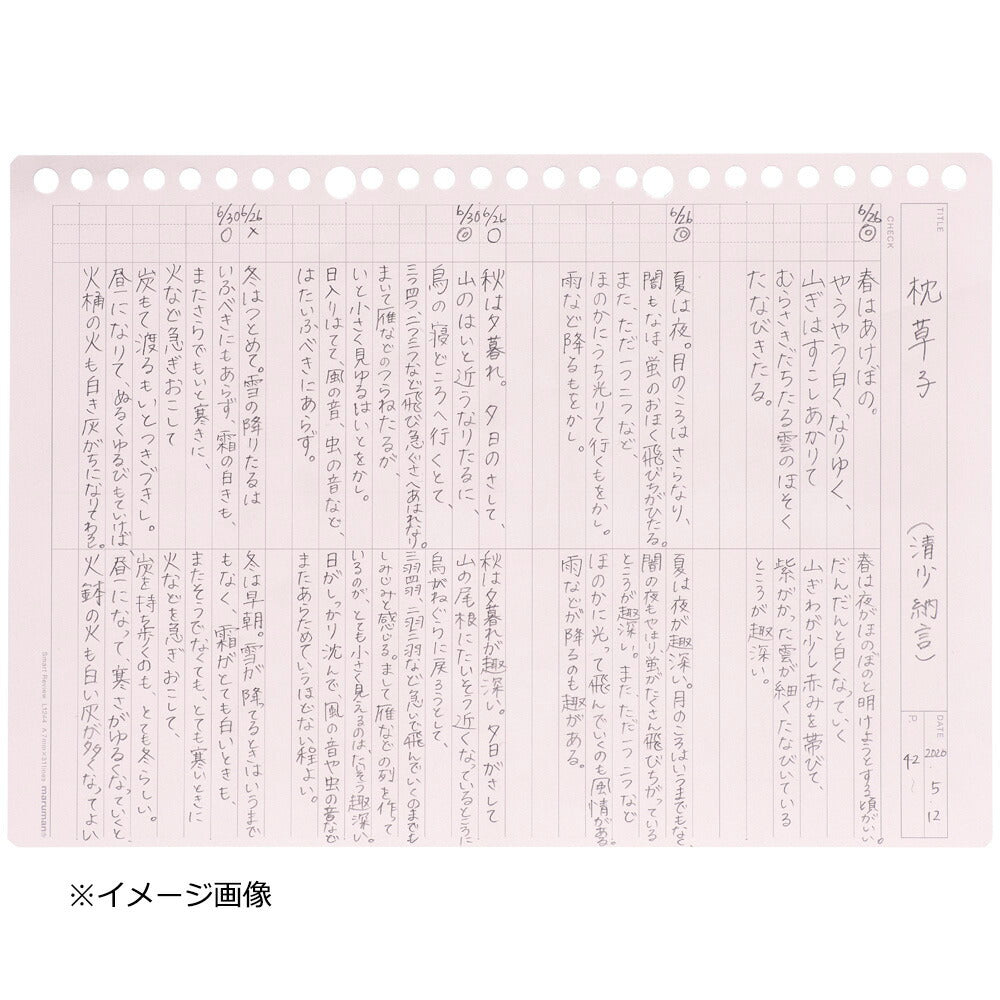 TITLE
枕草子
(清少納言)
DATE 2020 5 12
P. 42~
CHECK
6/26 ◎
春はあけぼの。
やうやう白くなりゆく、
山ぎはすこしあかりて
むらさきだちたる雲のほそく
たなびきたる。
6/26 ◎
夏は夜。月のころはさらなり、
闇もなほ、蛍のおほく飛びちがひたる。
また、ただ一つ二つなど、
ほのかにうち光りて行くもをかし。
雨など降るもをかし。
6/26 ○
6/30 ◎
秋は夕暮れ。夕日のさして、
山のはいと近うなりたるに、
烏の寝どころへ行くとて、
三つ四つ、二つ三つなど飛び急ぐさへあはれなり。
まいて雁などのつらねたるが、
いと小さく見ゆるはいとをかし。
日入りはてて、風の音、虫の音など、
はたいふべきにあらず。
6/26 ×
6/30 ○
冬はつとめて。雪の降りたるは
いふべきにもあらず、霜の白きも、
またさらでもいと寒きに、
火など急ぎおこして
炭もて渡るもいとつきづきし。
昼になりて、ぬるくゆるびもていけば、
火桶の火も白き灰がちになりてわろし。
春は夜がほのぼのと明けようとする頃がいい。
だんだんと白くなっていく
山ぎわが少し赤みを帯びて、
紫がかった雲が細くたなびいている
ところが趣深い。
夏は夜が趣深い。月のころはいうまでもなく、
闇の夜もやはり蛍がたくさん飛びちがっている
ところが趣深い。また、ただ一つ二つなど
ほのかに光って飛んでいくのも風情がある。
雨などが降るのも趣がある。
秋は夕暮れが趣深い。夕日がさして
山の尾根にたいそう近くなっているところに
烏がねぐらに戻ろうとして、
三羽四羽、二羽三羽など急いで飛んでいくのまでも
しみじみと感じる。まして雁などの列を作って
いるのが、とても小さく見えるのは、たいそう趣深い。
日がしっかり沈んで、風の音や虫の音など
またあらためていうほどない程よい。
冬は早朝。雪が降ってるときはいうまで
もなく、霜がとても白いときも、
またそうでなくても、とても寒いときに
火などを急ぎおこして、
炭を持ち歩くのも、とても冬らしい。
昼になって、寒さがゆるくなっていくと
火鉢の火も白い灰が多くなってよい
Smart Review L1264 A 7mm×31lines maruman®
※イメージ画像